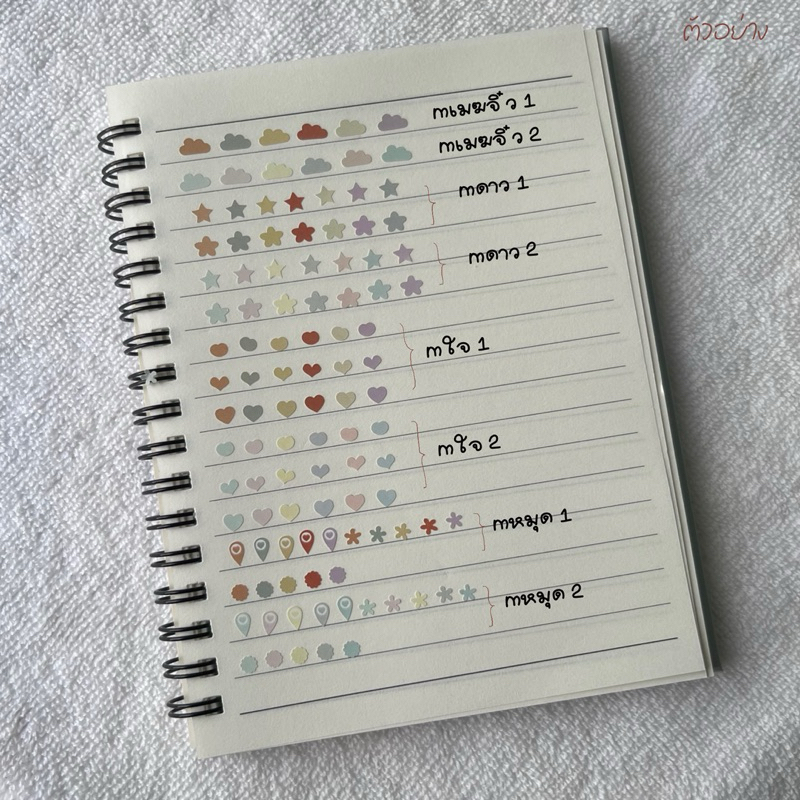 ตัวอย่าง
mเมฆจิ๋ว 1
mเมฆจิ๋ว 2
mดาว 1
mดาว 2
mใจ 1
mใจ 2
mหมุด 1
mหมุด 2